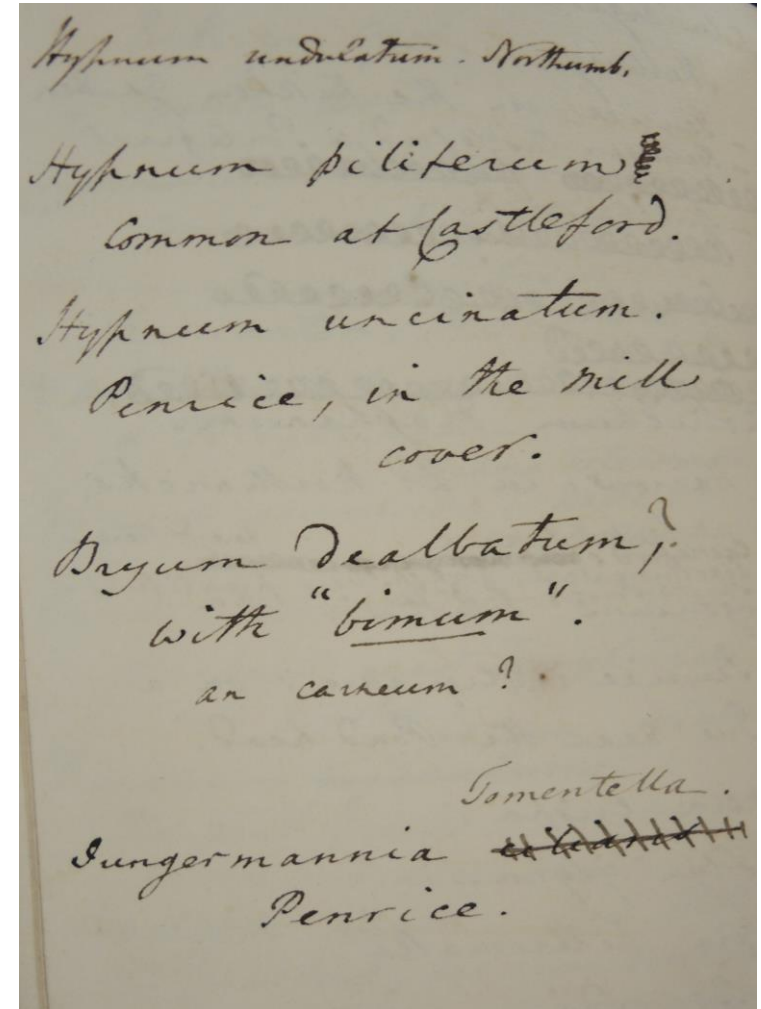 Hypnum undulatum. Northumb.
Hypnum piliferum
Common at Castleford.
Hypnum uncinatum.
Penrice, in the Mill
cover.
Bryum dealbatum?
with "bimum".
an carneum?
Tomentella.
Jungermannia
Penrice.